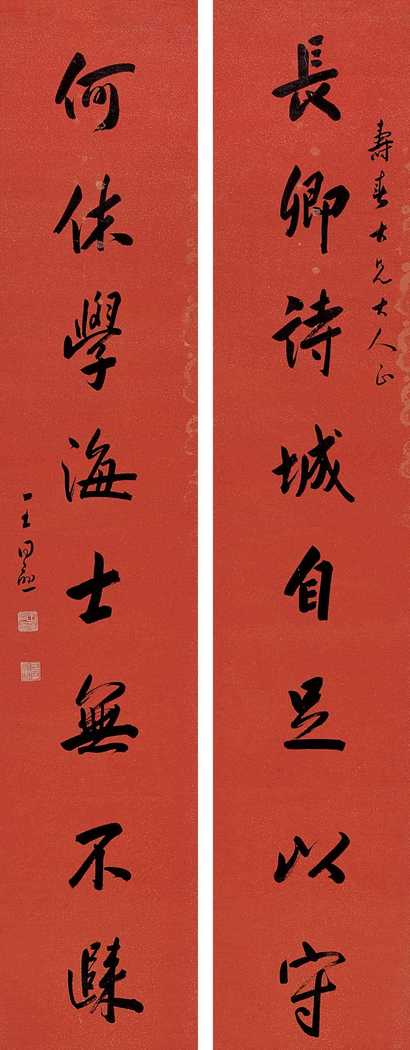 壽春大兄大人正
長卿詩城自足以守
何休學海士無不歸
王同愈